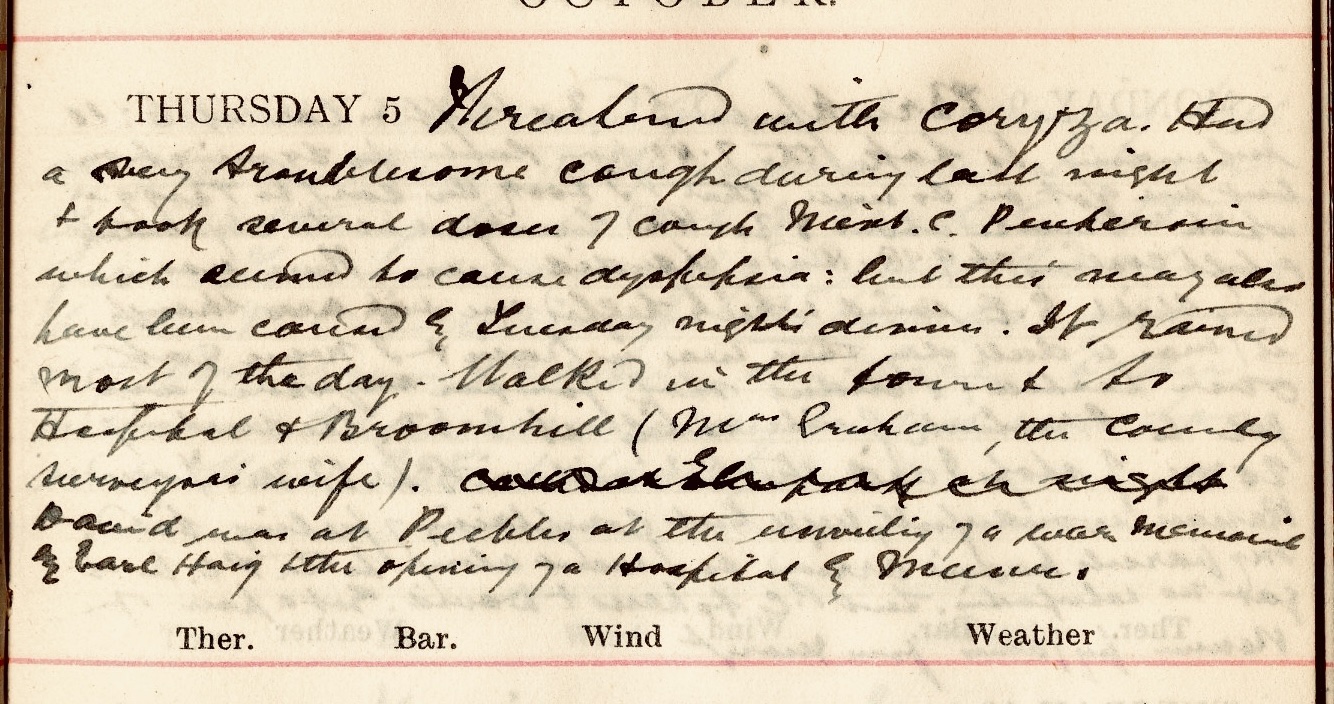 OCTOBER.
THURSDAY 5 Threatened with Coryza. Had
a very troublesome cough during last night
& took several doses of cough Mixt. C.
which seemed to cause dyspepsia: but this may also
have been caused by Tuesday night's dinner. It rained
most of the day. Walked in the town & to
Hospital & Broomhill (Mrs Graham, the County
surveyors wife).
David was at Peebles at the unveiling of a war Memorial
by Earl Haig & the opening of a Hospital by Munro.
Ther. Bar. Wind Weather